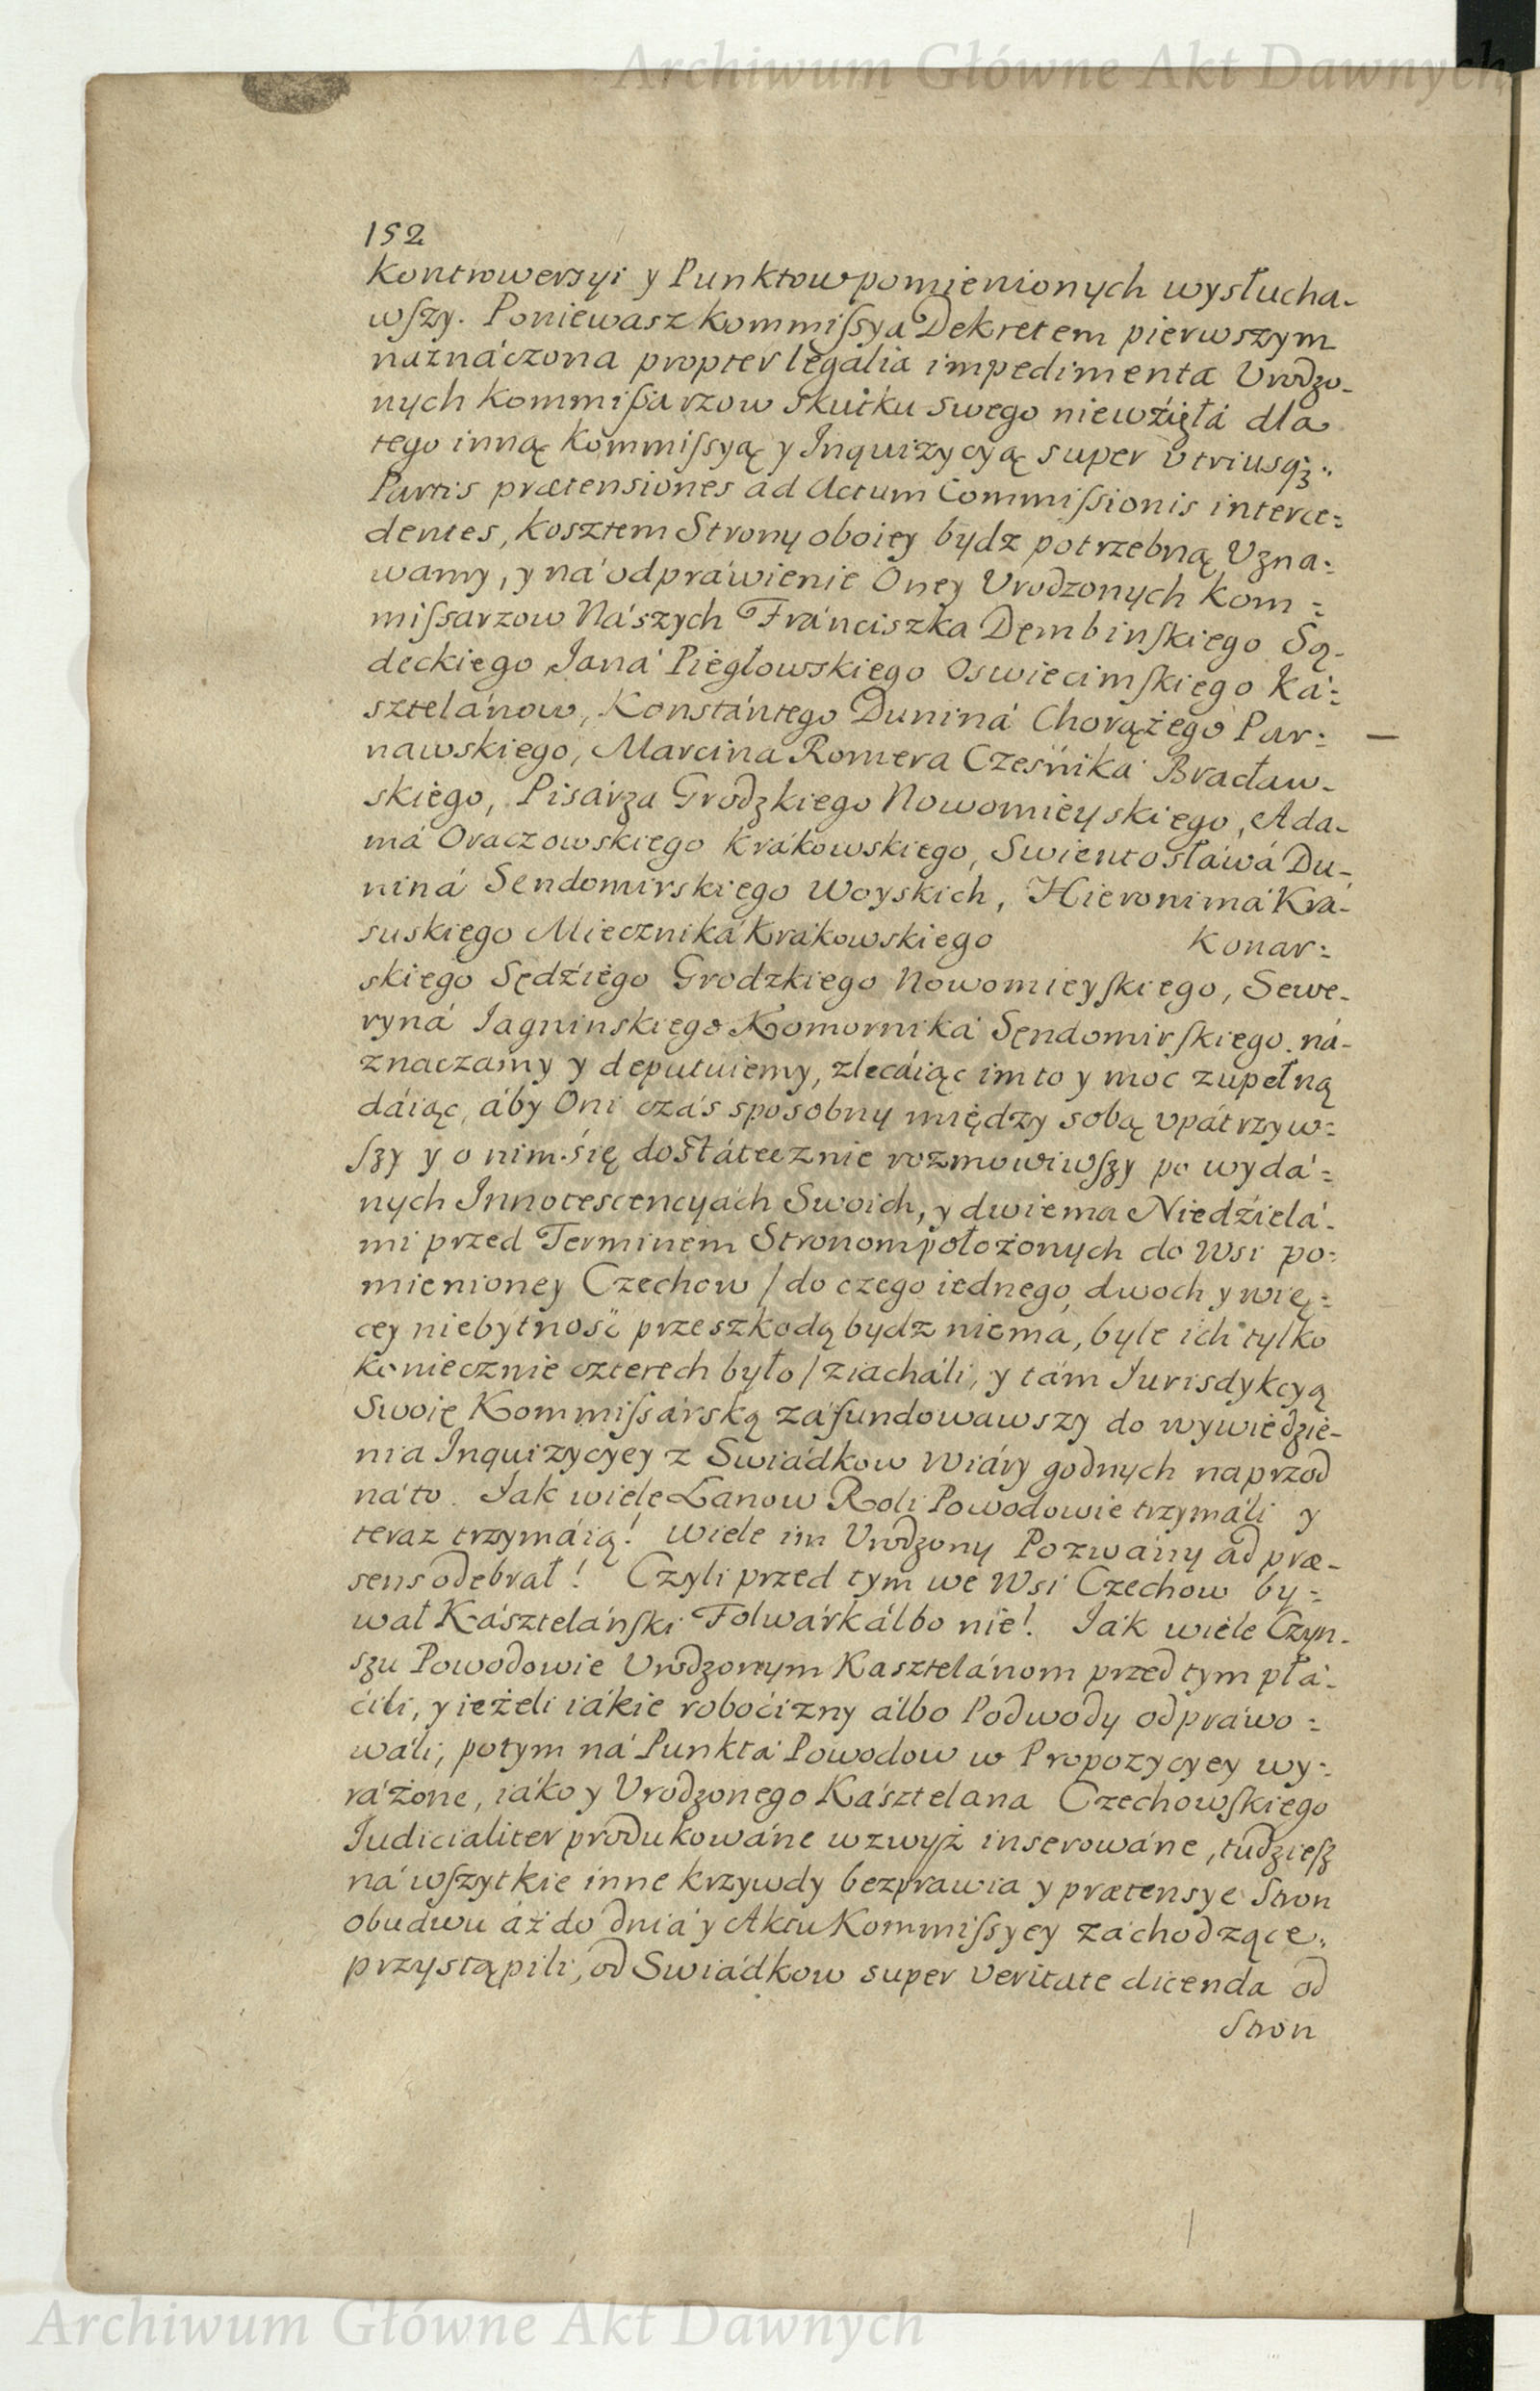 Archiwum Główne Akt Dawnych
152
Kontrowersyi y Punktow pomienionych wysłucha-
wſzy. Poniewasz kommiſsya Dekretem pierwszym
náznáczona propter legalia impedimenta Urodzo-
nych Kommiſsarzow Skutku swego niewźięłá dla
tego inną Kommiſsyą y Inquizycyą super utriusqꝫ
Partis prætensiones ad Actum Commiſsionis interce=
dentes, kosztem Strony oboiey bydz potrzebną Uzna=
wamy, y ná odpráwienie Oney Urodzonych Kom=
miſsarzow Nászych Fránciszka Dembinſkiego Są-
deckiego Janá Piegłowskiego Oswiecimſkiego Ká=
sztelánow, Konstántego Duniná Chorążego Par= —
nawskiego, Marcina Romera Cześniká Bracław-
skiego, Pisárza Grodzkiego Nowomieyskiego, Ada-
má Oraczowskiego Krákowskiego, Swientosłáwá Du-
niná Sendomirskiego Woyskich, Hieronimá Krá-
suskiego Mieczniká Krákowskiego Konar=
skiego Sędźiego Grodzkiego Nowomieyſkiego, Sewe-
ryná Jagninskiego Komorniká Sęndomirſkiego ná-
znaczamy y deputuiemy, zlecáiąc im to y moc zupełną
dáiąc, áby Oni czás sposobny między sobą upátrzyw=
ſzy y o nim się dostátecznie rozmowiwſzy po wydá=
nych Innotescencyách Swoich, y dwiema Niedźielá-
mi przed Terminem Stronom położonych do Wsi po=
mienioney Czechow / do czego iednego, dwoch y wię=
cey niebytność przeszkodą bydz niemá, byle ich tylko
koniecznie czterech było / ziacháli, y tám Jurisdykcyą
Swoię Kommiſsárską záfundowawszy do wywiedzie-
nia Inquizycyey z Swiádkow Wiáry godnych naprzod
ná to. Jak wiele Łanow Roli Powodowie trzymáli y
teraz trzymáią! wiele im Urodzony Pozwány ad præ-
sens odebrał! Czyli przed tym we Wsi Czechow by=
wał Kásztelánſki Folwárk álbo nie! Ják wiele Czyn-
szu Powodowie Urodzonym Kasztelánom przed tym płá-
ćili, y ieżeli iákie roboćizny álbo Podwody odprawo=
wáli, potym ná Punktá Powodow w Propozycyey wy=
ráżone, iáko y Urodzonego Kásztelana Czechowſkiego
Judicialiter produkowáne wzwyż inserowáne, tudzieſz
ná wſzytkie inne krzywdy bezprawia y prætensye Stron
obudwu áż do dniá y Aktu Kommiſsyey záchodzące
przystąpili, od Swiádkow super veritate dicenda od
Stron
Archiwum Główne Akt Dawnych